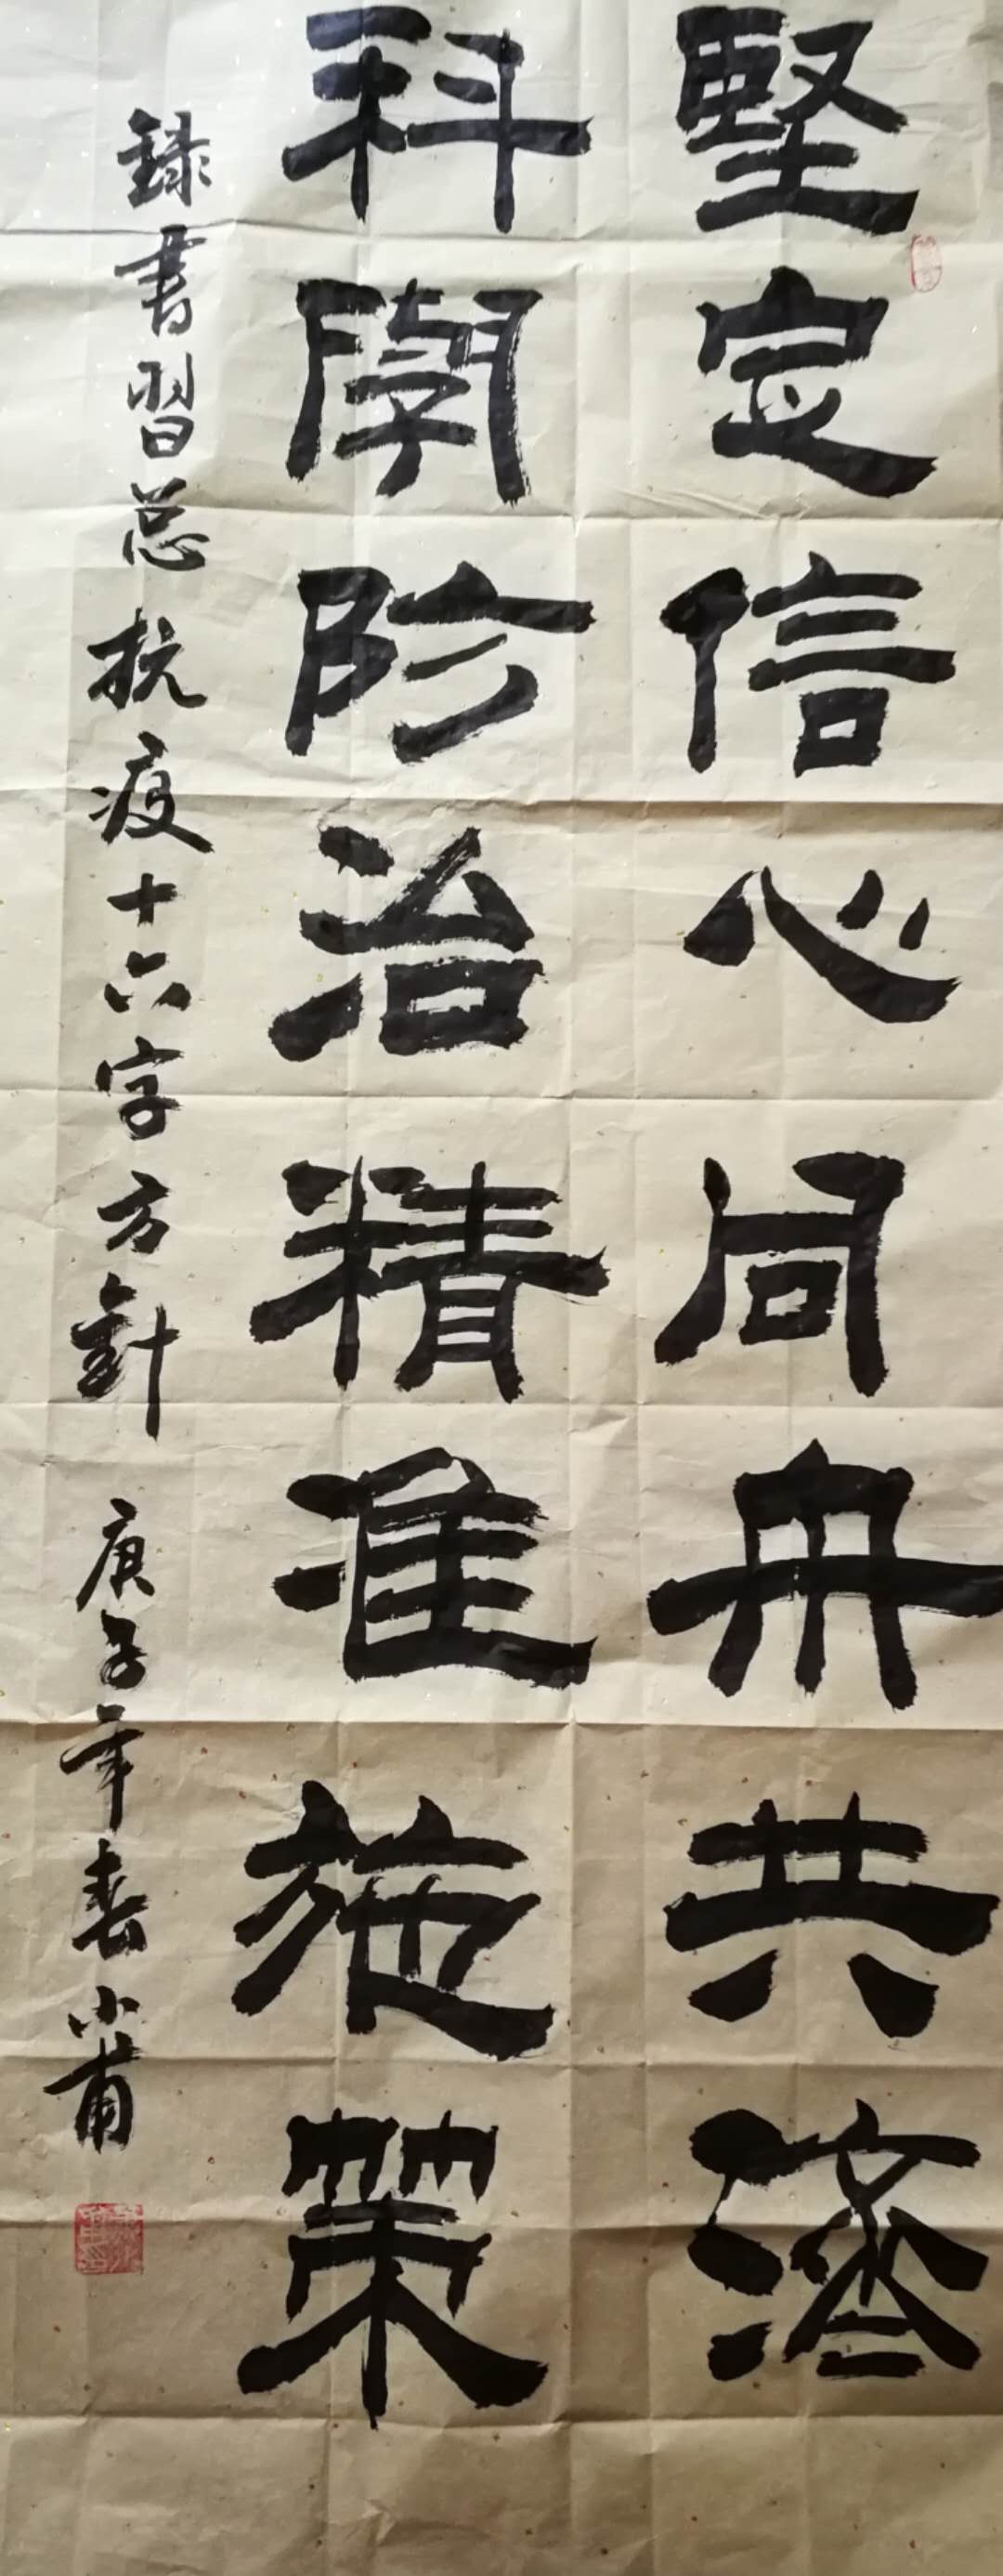 堅定信心同舟共濟
科學防治精准施策
録書習总抗疫十六字方針 庚子年春小甫